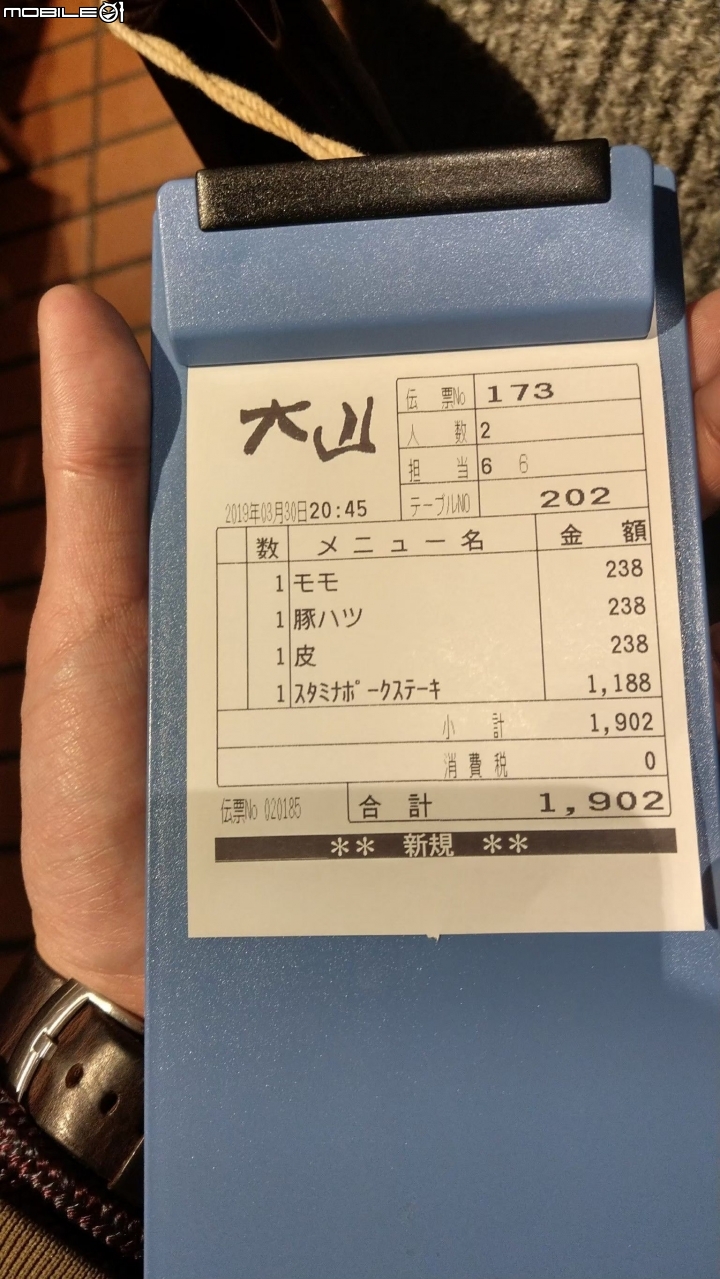 MOBILE01
大山
伝票No 173
人数 2
担当 6 6
2019年03月30日20:45 テーブルNO 202
数 メニュー名 金額
1 モモ 238
1 豚ハツ 238
1 皮 238
1 ｽﾀﾐﾅﾎﾟｰｸｽﾃｰｷ 1,188
小計 1,902
消費税 0
伝票No 020185 合計 1,902
** 新規 **